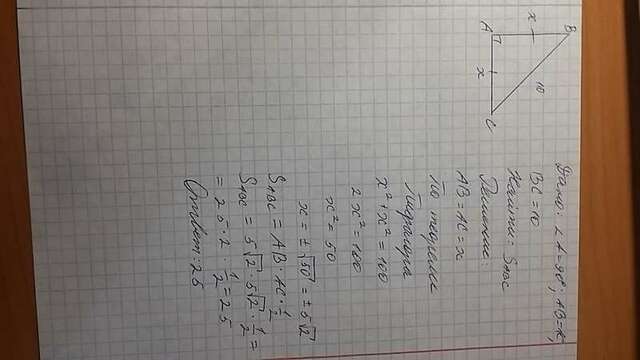 B
A
C
x
x
10
Дано: ∠A=90°; AB=AC;
BC=10
Найти: SABC
Решение:
AB=AC=x
По теореме
Пифагора
x²+x²=100
2x²=100
x²=50
x=±√50=±5√2
SABC=AB·AC·1/2
SABC=5√2·5√2·1/2=
=25·2·1/2=25
Ответ: 25